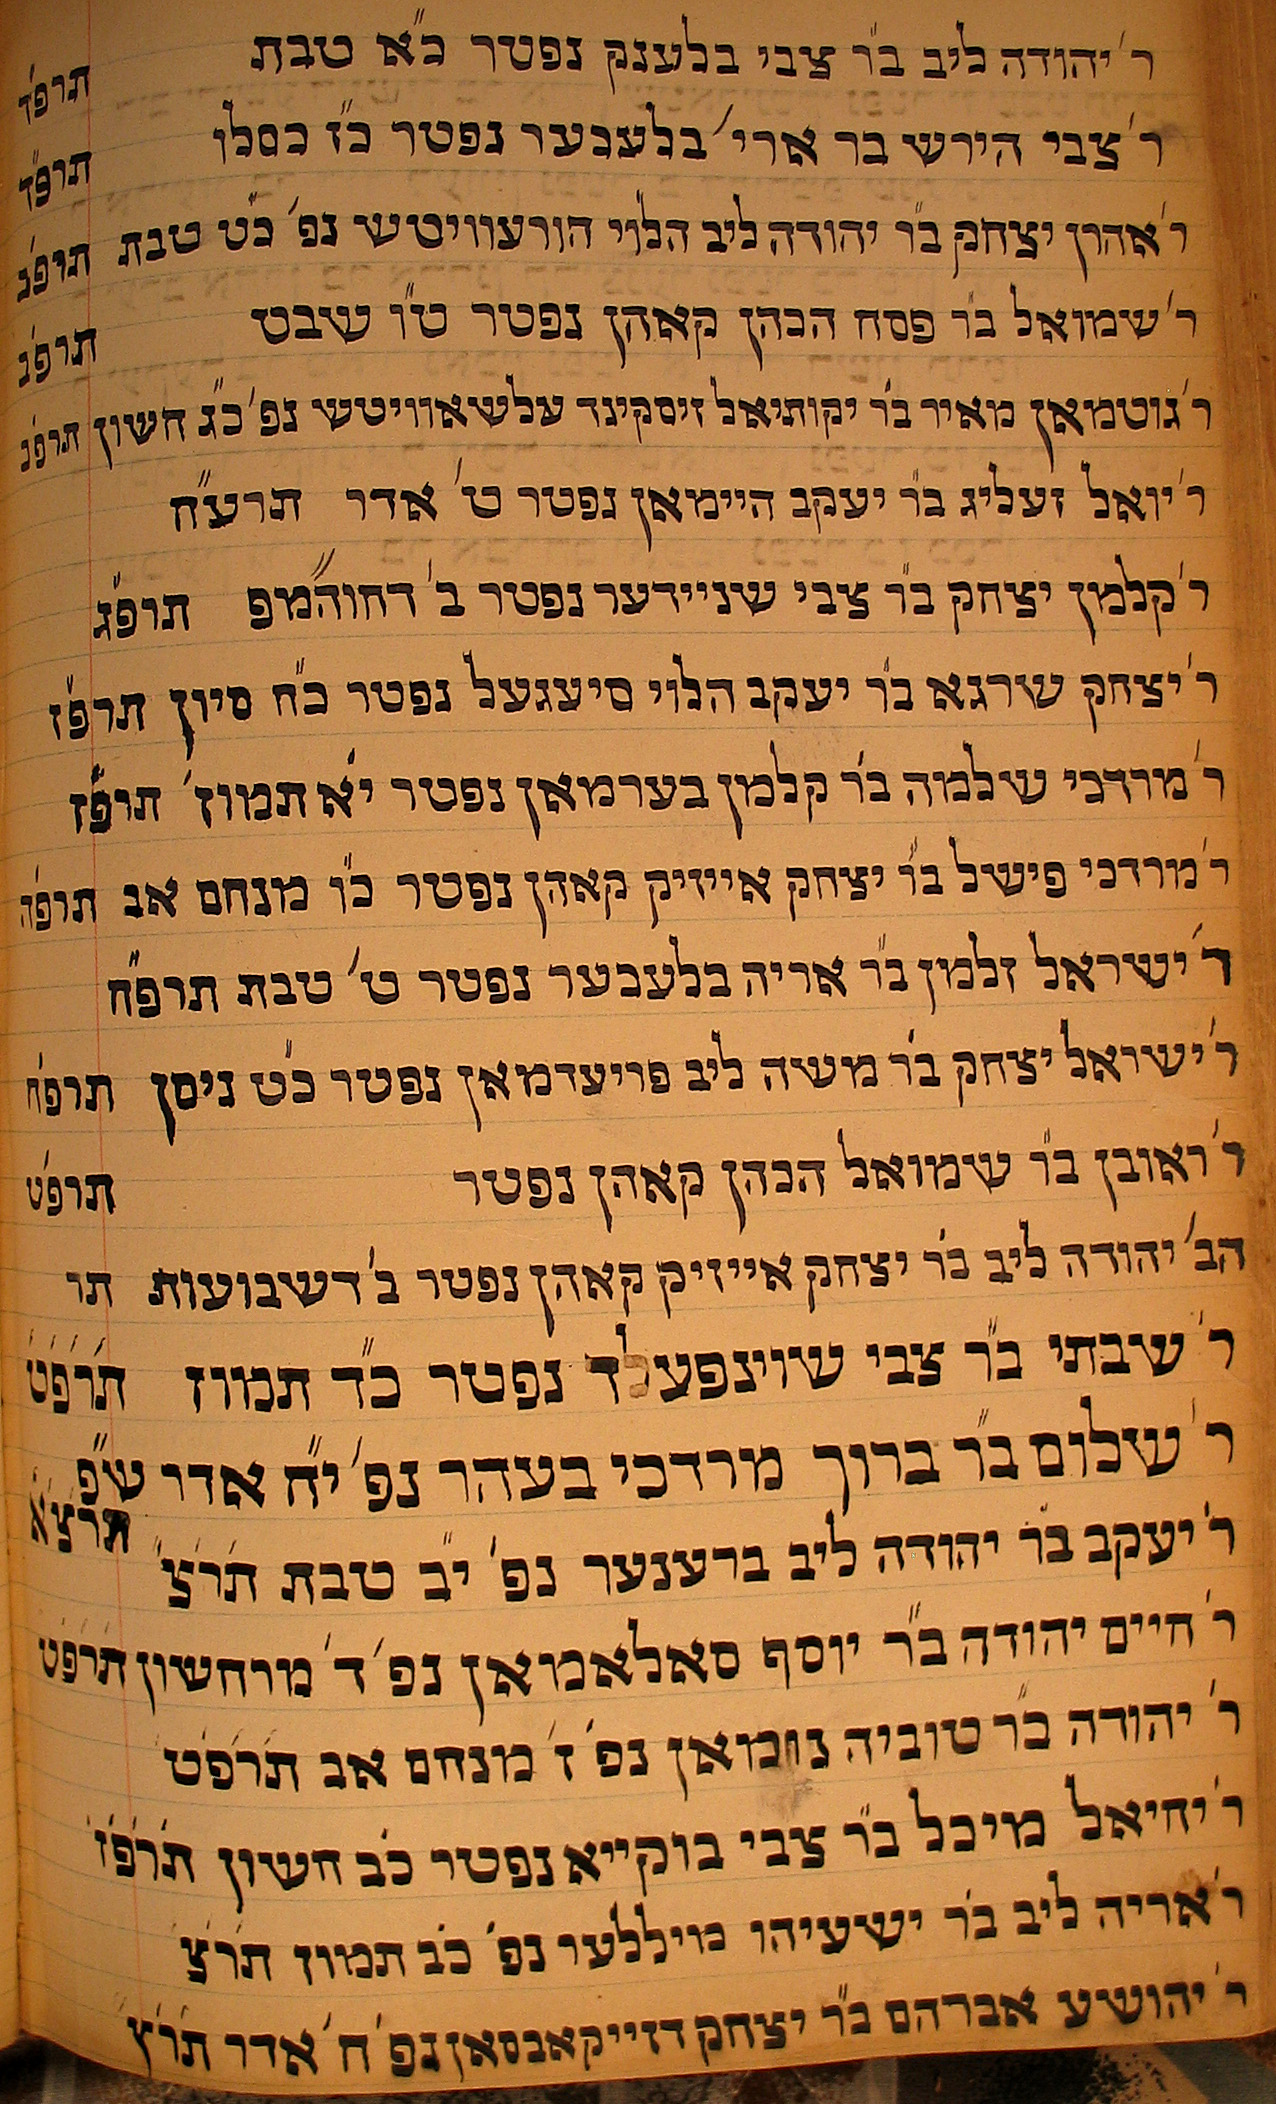 ר' יהודה ליב ב"ר צבי בלענק נפטר כ"א טבת תרפ"ד
ר' צבי הירש בר ארי' בלעכער נפטר כ"ז כסלו תרפ"ד
ר' אהרן יצחק ב"ר יהודה ליב הלוי הורעוויטש נפ' כ"ט טבת תרפ"ג
ר' שמואל ב"ר פסח הכהן קאהן נפטר ט"ו שבט תרפ"ג
ר' גוטמאן מאיר ב"ר יקותיאל זיסקינד עלשאוויטש נפ' כ"ג חשון תרפ"ג
ר' יואל זעליג ב"ר יעקב היימאן נפטר ט' אדר תרע"ח
ר' קלמן יצחק ב"ר צבי שניידער נפטר ב' דחוה"מפ תרפ"ג
ר' יצחק שרגא ב"ר יעקב הלוי סיעגעל נפטר כ"ח סיון תרפ"ז
ר' מרדכי שלמה ב"ר קלמן בערמאן נפטר י"א תמוז תרפ"ז
ר' מרדכי פישל ב"ר יצחק אייזיק קאהן נפטר כ"ו מנחם אב תרפ"ה
ר' ישראל זלמן ב"ר אריה בלעכער נפטר ט' טבת תרפ"ח
ר' ישראל יצחק ב"ר משה ליב פריעדמאן נפטר כ"ט ניסן תרפ"ח
ר' ראובן ב"ר שמואל הכהן קאהן נפטר תרפ"ט
הב' יהודה ליב ב"ר יצחק אייזיק קאהן נפטר ב' דשבועות תר
ר' שבתי ב"ר צבי שוינפעלד נפטר כ"ד תמוז תרפט
ר' שלום ב"ר ברוך מרדכי בעהר נפ' י"ח אדר ש"פ תרצא
ר' יעקב ב"ר יהודה ליב ברענער נפ' י"ב טבת תרצ
ר' חיים יהודה ב"ר יוסף סאלאמאן נפ' ד' מרחשון תרפט
ר' יהודה ב"ר טוביה נוימאן נפ' ז' מנחם אב תרפט
ר' יחיאל מיכל ב"ר צבי בוקייא נפטר כ"ב חשון תרפז
ר' אריה ליב ב"ר ישעיהו מיללער נפ' כ"ב תמוז תרצ
ר' יהושע אברהם ב"ר יצחק דזייקאבסאן נפ' ח' אדר תרץ